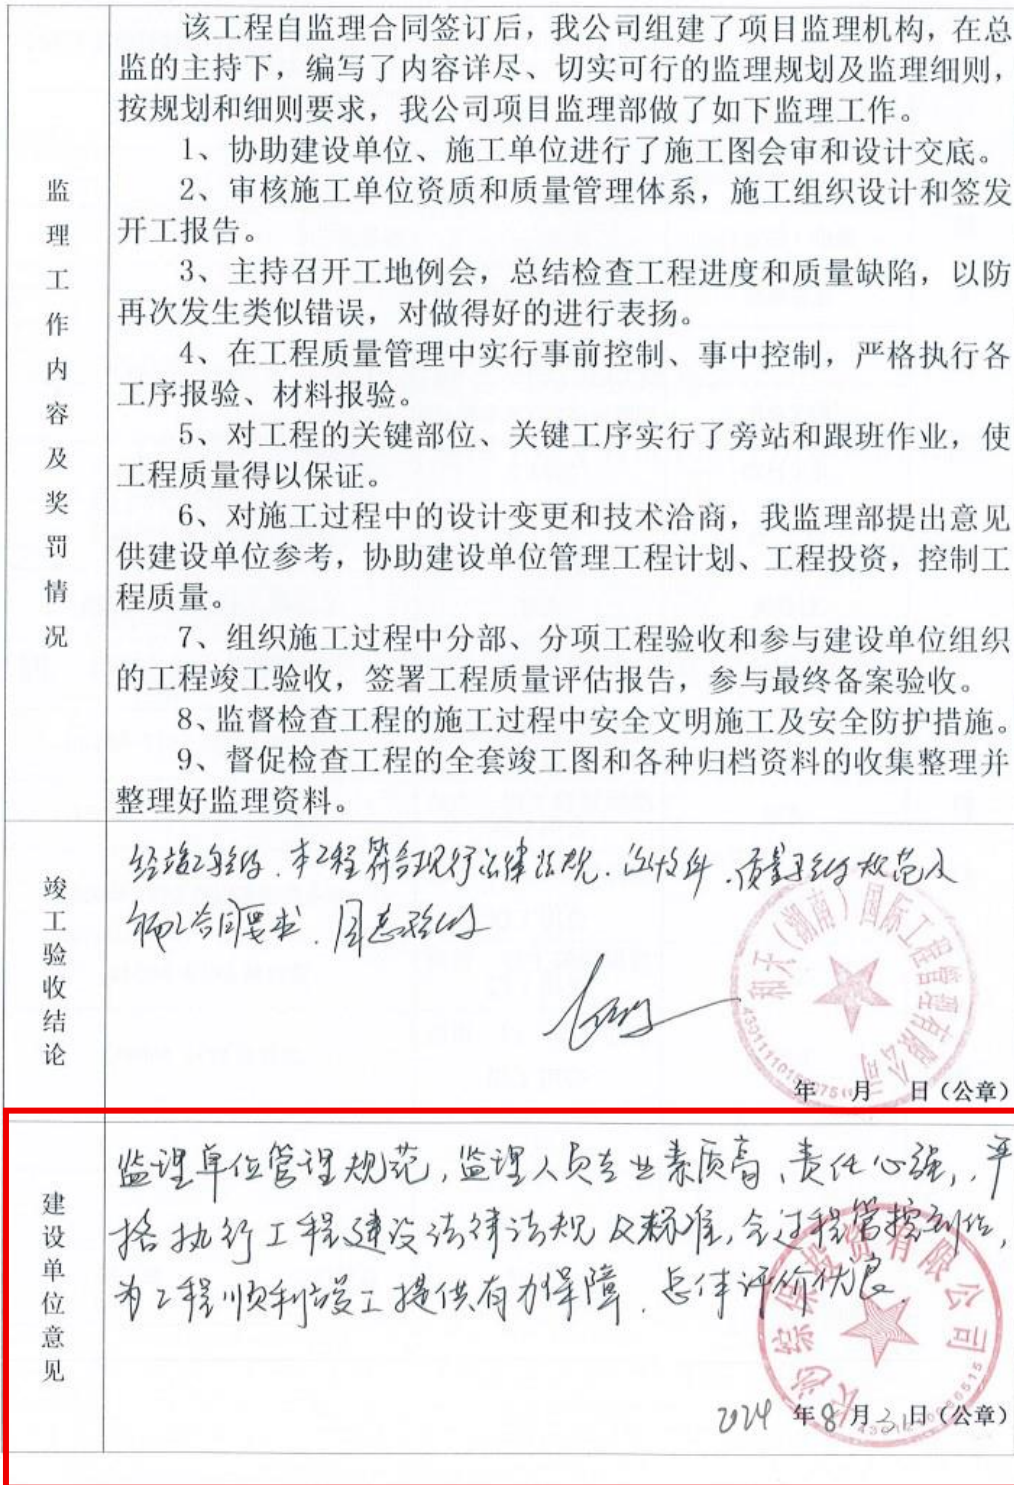 监理工作内容及奖罚情况
该工程自监理合同签订后，我公司组建了项目监理机构，在总
监的主持下，编写了内容详尽、切实可行的监理规划及监理细则，
按规划和细则要求，我公司项目监理部做了如下监理工作。
1、协助建设单位、施工单位进行了施工图会审和设计交底。
2、审核施工单位资质和质量管理体系，施工组织设计和签发
开工报告。
3、主持召开工地例会，总结检查工程进度和质量缺陷，以防
再次发生类似错误，对做得好的进行表扬。
4、在工程质量管理中实行事前控制、事中控制，严格执行各
工序报验、材料报验。
5、对工程的关键部位、关键工序实行了旁站和跟班作业，使
工程质量得以保证。
6、对施工过程中的设计变更和技术洽商，我监理部提出意见
供建设单位参考，协助建设单位管理工程计划、工程投资，控制工
程质量。
7、组织施工过程中分部、分项工程验收和参与建设单位组织
的工程竣工验收，签署工程质量评估报告，参与最终备案验收。
8、监督检查工程的施工过程中安全文明施工及安全防护措施。
9、督促检查工程的全套竣工图和各种归档资料的收集整理并
整理好监理资料。
竣工验收结论
经竣工验收，本工程符合现行法律法规、设计文件、质量验收规范及
施工合同要求，同意验收
和天（湖南）国际工程管理有限公司
年 月 日（公章）
建设单位意见
监理单位管理规范，监理人员专业素质高、责任心强，严
格执行工程建设法律法规及标准，全过程管控到位，
为工程顺利竣工提供有力保障，总体评价优良。
综保投资有限公司
2024 年 8 月 日（公章）